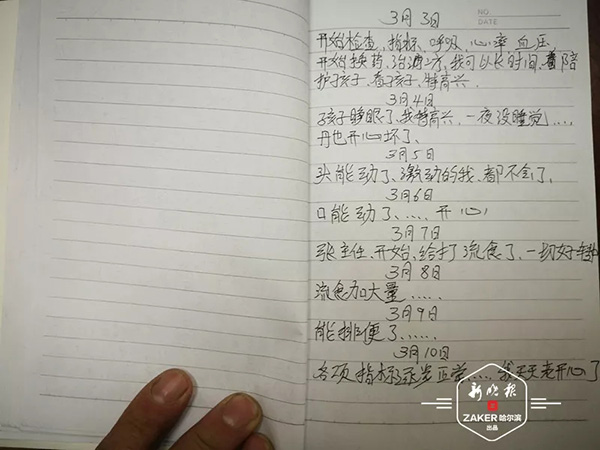 3月3日
NO.
DATE
开始检查,指标、呼吸、心率、血压,
开始换药、治酒方,我可以长时间、看陪
护孩子、看孩子、特高兴.
3月4日
孩子睁眼了、我特高兴、一夜没睡觉....
丹也开心坏了、
3月5日
头能动了、激动的我、都不会了、
3月6日
口能动了、.... 开心
3月7日
张主任、开始、给打流食了、一切好转
3月8日
流食加大量.....
3月9日
能排便了.....
3月10日
各项指标逐步正常.... 我天天老开心了
新晚报
ZAKER哈尔滨
出品